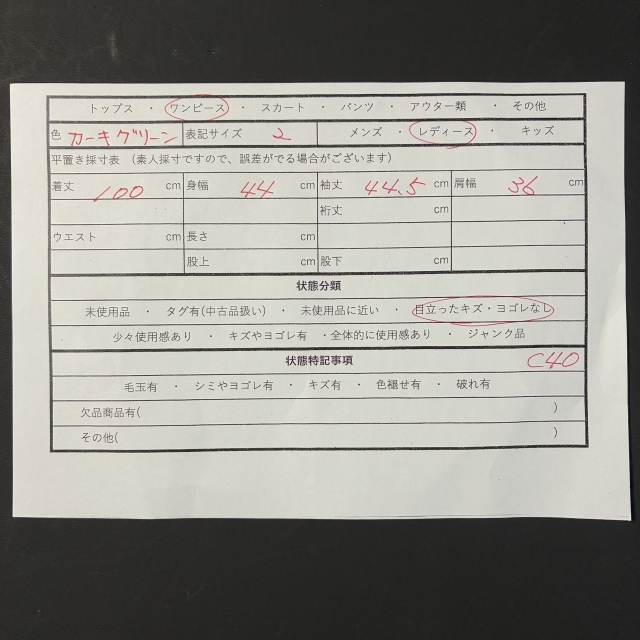 トップス ・ ワンピース ・ スカート ・ パンツ ・ アウター類 ・ その他
色 カーキグリーン 表記サイズ 2 メンズ ・ レディース ・ キッズ
平置き採寸表 (素人採寸ですので、誤差がでる場合がございます)
着丈 100 cm 身幅 44 cm 袖丈 44.5 cm 肩幅 36 cm
裄丈 cm
ウエスト cm 長さ cm
股上 cm 股下 cm
状態分類
未使用品 ・ タグ有(中古品扱い) ・ 未使用品に近い ・ 目立ったキズ・ヨゴレなし
少々使用感あり ・ キズやヨゴレ有 ・全体的に使用感あり ・ ジャンク品
状態特記事項 C40
毛玉有 ・ シミやヨゴレ有 ・ キズ有 ・ 色褪せ有 ・ 破れ有
欠品商品有( )
その他( )